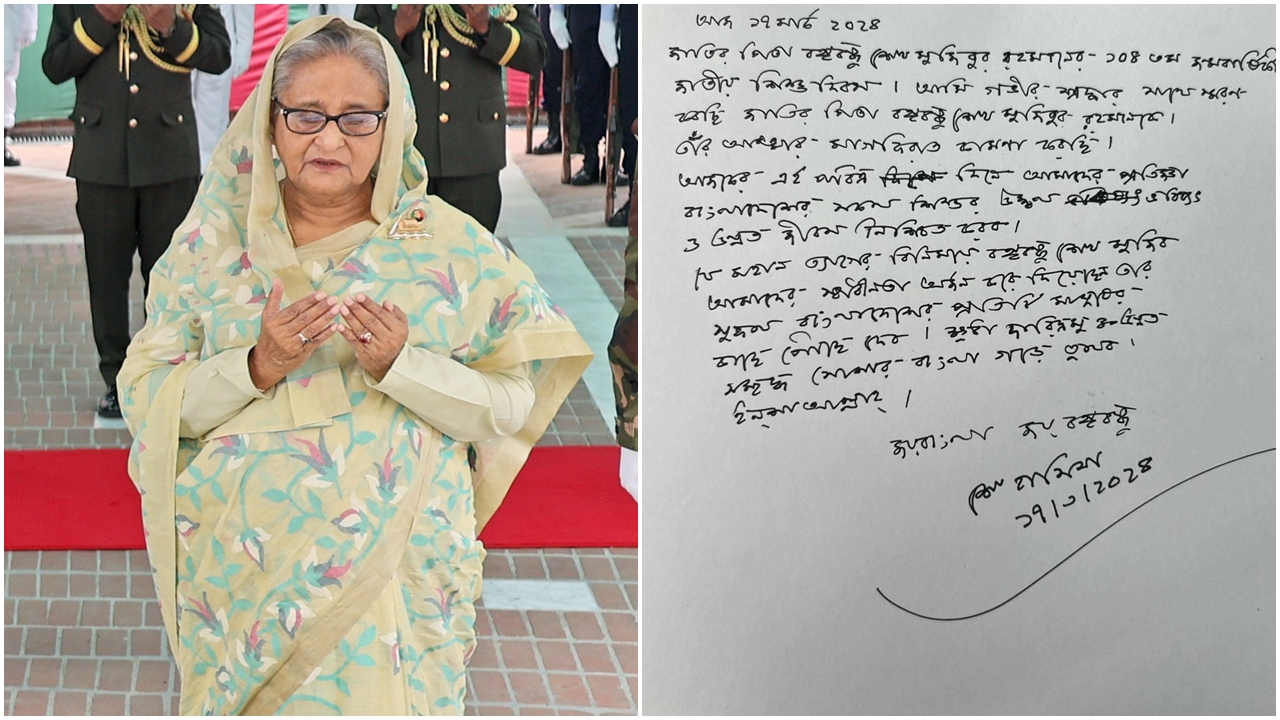 আজ ১৭ মার্চ ২০২৪
জাতির পিতা বঙ্গবন্ধু শেখ মুজিবুর রহমানের ১০৪ তম জন্মবার্ষিকী
জাতীয় শিশু দিবস । আমি গভীর শ্রদ্ধার সাথে স্মরণ
করছি জাতির পিতা বঙ্গবন্ধু শেখ মুজিবুর রহমানকে ।
তাঁর আত্মার মাগফিরাত কামনা করছি ।
আজকের এই পবিত্র দিনে আমাদের প্রতিজ্ঞা
বাংলাদেশের সকল শিশুর উজ্জ্বল ভবিষ্যৎ
ও উন্নত জীবন নিশ্চিত করব ।
যে মহান ত্যাগের বিনিময়ে বঙ্গবন্ধু শেখ মুজিব
আমাদের স্বাধীনতা অর্জন করে দিয়েছেন তার
সুফল বাংলাদেশের প্রতিটি মানুষের
কাছে পৌঁছে দেব । ক্ষুধা দারিদ্র্য মুক্ত উন্নত
সমৃদ্ধ সোনার বাংলা গড়ে তুলব ।
ইনশাআল্লাহ্ ।
জয় বাংলা জয় বঙ্গবন্ধু
শেখ হাসিনা
১৭/৩/২০২৪